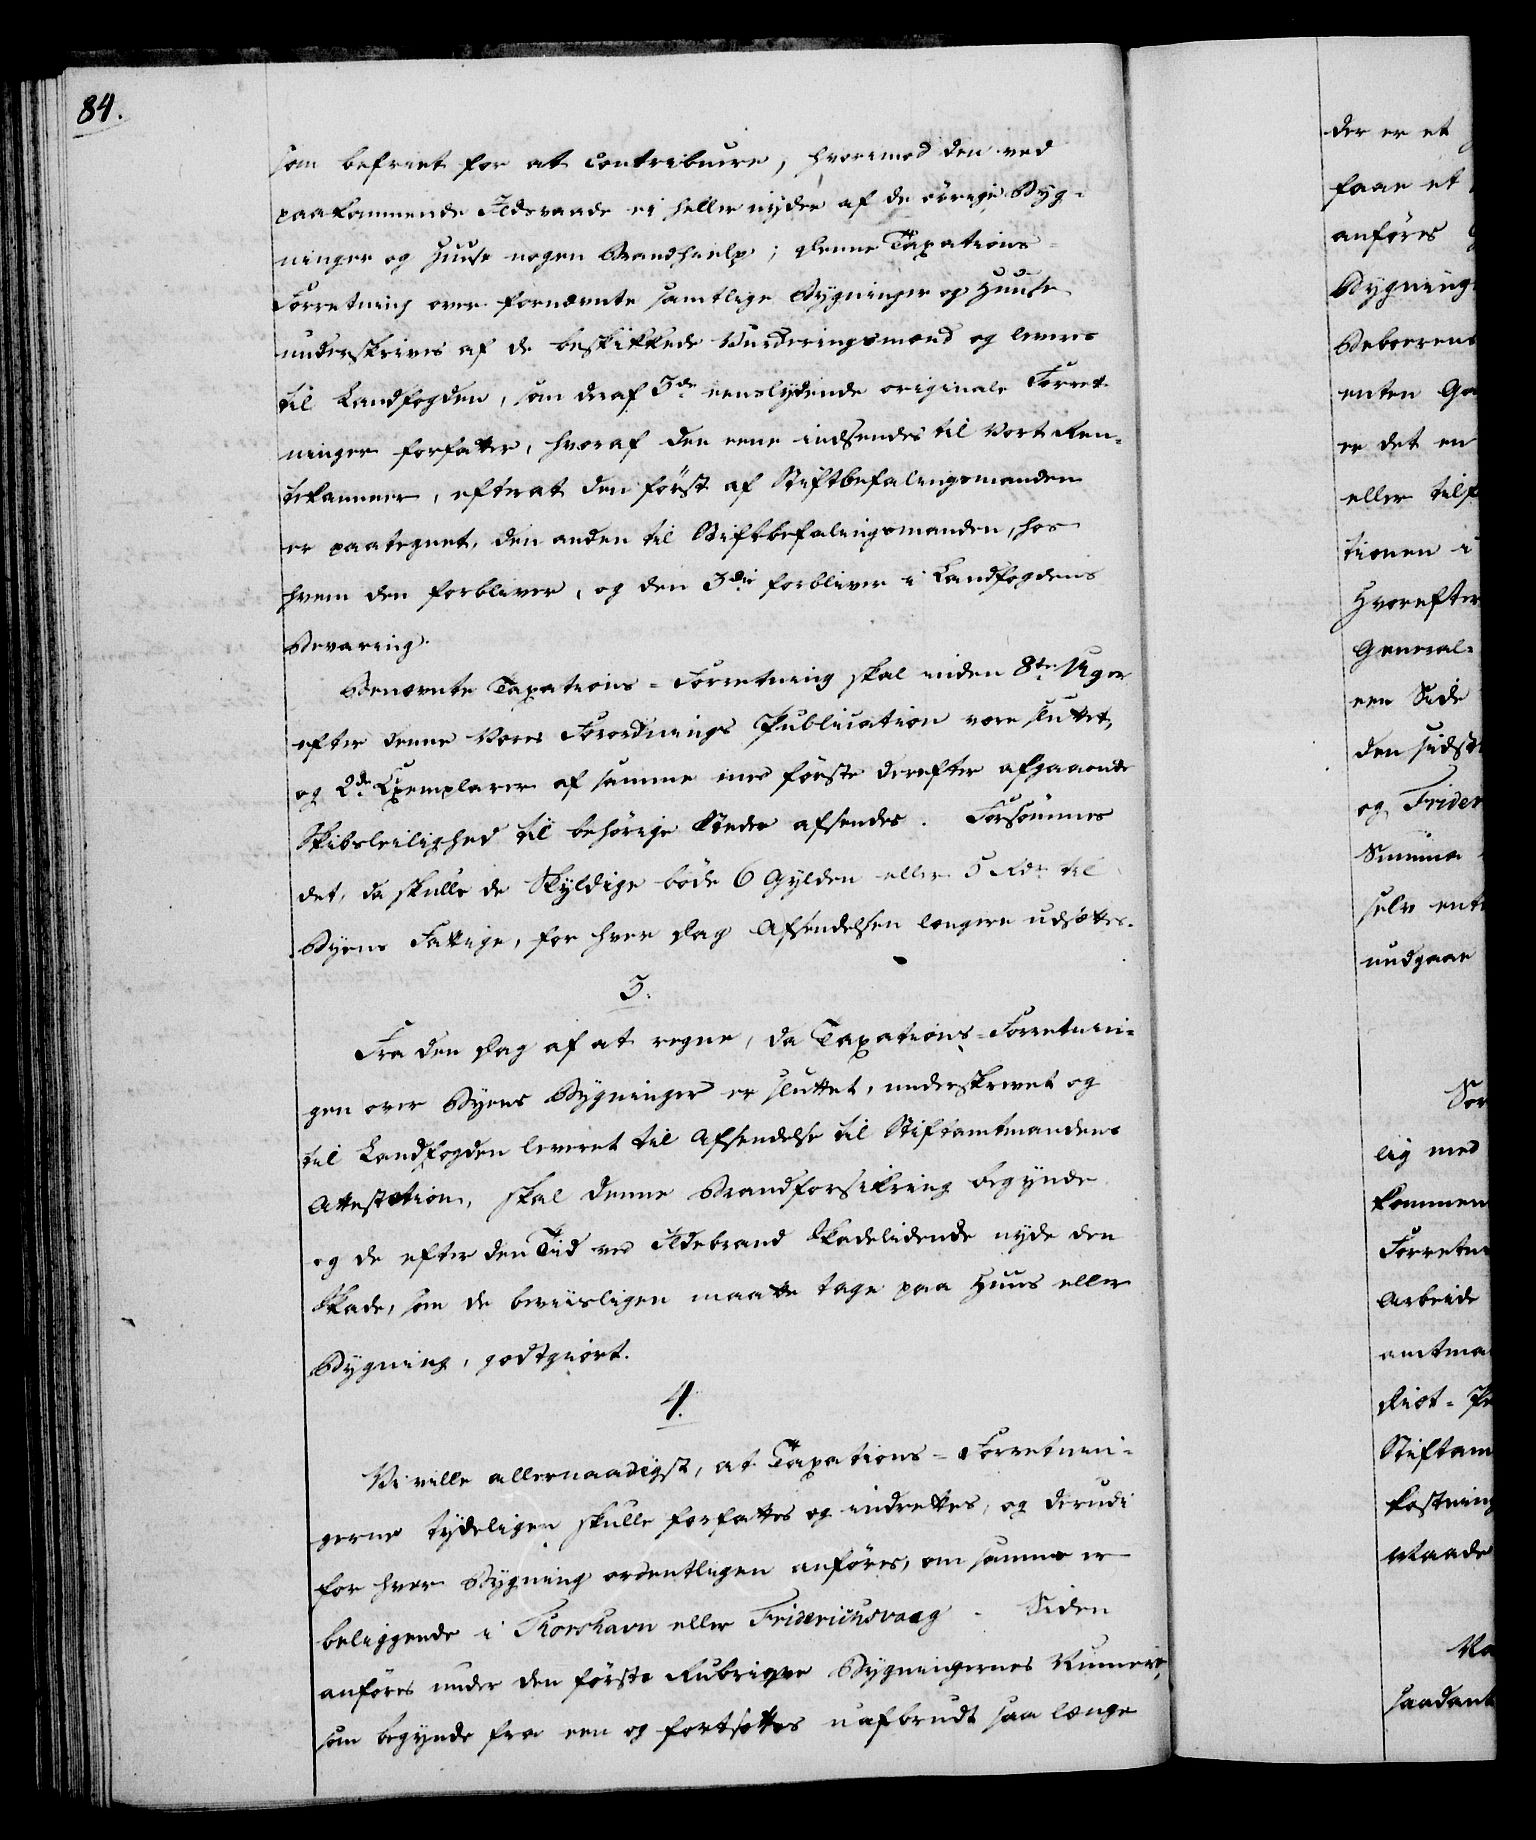 84.
som befriet for at contribuere, hvorimod den ved
paakommende Ildsvaade ei heller nyder af de øvrige Byg-
ninger og Huuse nogen Brandhielp; denne Taxations-
Forretning over fornævnte samtlige Bygninger og Huuse
underskrives af de beskikkede Vurderingsmænd og leveres
til Landfogden, som deraf 3de eenslydende originale Forret-
ninger forfatter, hvoraf den eene indsendes til Vort Ren-
tekammer, efterat den først af Stiftbefalingsmanden
er paategnet, den anden til Stiftbefalingsmanden, hos
hvem den forbliver, og den 3die forbliver i Landfogdens
Bevaring.
Benævnte Taxations-Forretning skal inden 8te Uger
efter denne Vores Forordnings Publication være sluttet,
og 2de Exemplarer af samme med første derefter afgaaende
Skibsleilighed til behørige Stæder afsendes. Forsømmes
det, da skulle de Skyldige bøde 6 Gylden eller 5 Rdr til
Byens Fattige, for hver Dag Afsendelsen længere udsættes.
3.
Fra den Dag af at regne, da Taxations-Forretnin-
gen over Byens Bygninger er sluttet, underskrevet og
til Landfogden leveret til Afsendelse til Stiftamtmandens
Attestation, skal denne Brandforsikring begynde
og de efter den Tid ved Ildebrand Skadelidende nyde den
Skade, som de beviisligen maatte tage paa Huus eller
Bygning, godtgiort.
4.
Vi ville allernaadigst, at Taxations-Forretnin-
gerne tydeligen skulle forfattes og indrettes, og derudi
for hver Bygning ordentligen anføres, om samme er
beliggende i Thorshavn eller Friderichsvaag. Siden
anføres under den første Rubriqve Bygningernes Numere,
som begynde fra een og fortsættes uafbrudt saa længe
der er et
faae et
anføres
Bygning
Beboerens
enten Ga
er det en
eller tilf
tionen i
Hvorefter
General-
een Side
den sidst
og Frider
Summa
selv ent
undgaae
Sor
lig med
kommen
Forretn
Arbeide
amtma
Stiftam
kostning
Maade
saadant